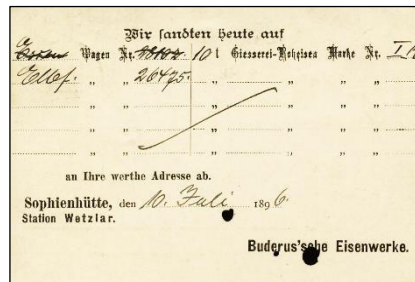 Wir sandten heute auf
Wagen Nr. 10 t Giesserei-Roheisen Marke Nr. I
Elbf. " " 26475. " " " "
" " " " " "
" " " " " "
" " " " " "
an Ihre werthe Adresse ab.
Sophienhütte, den 10. Juli 1896.
Station Wetzlar.
Buderus'sche Eisenwerke.